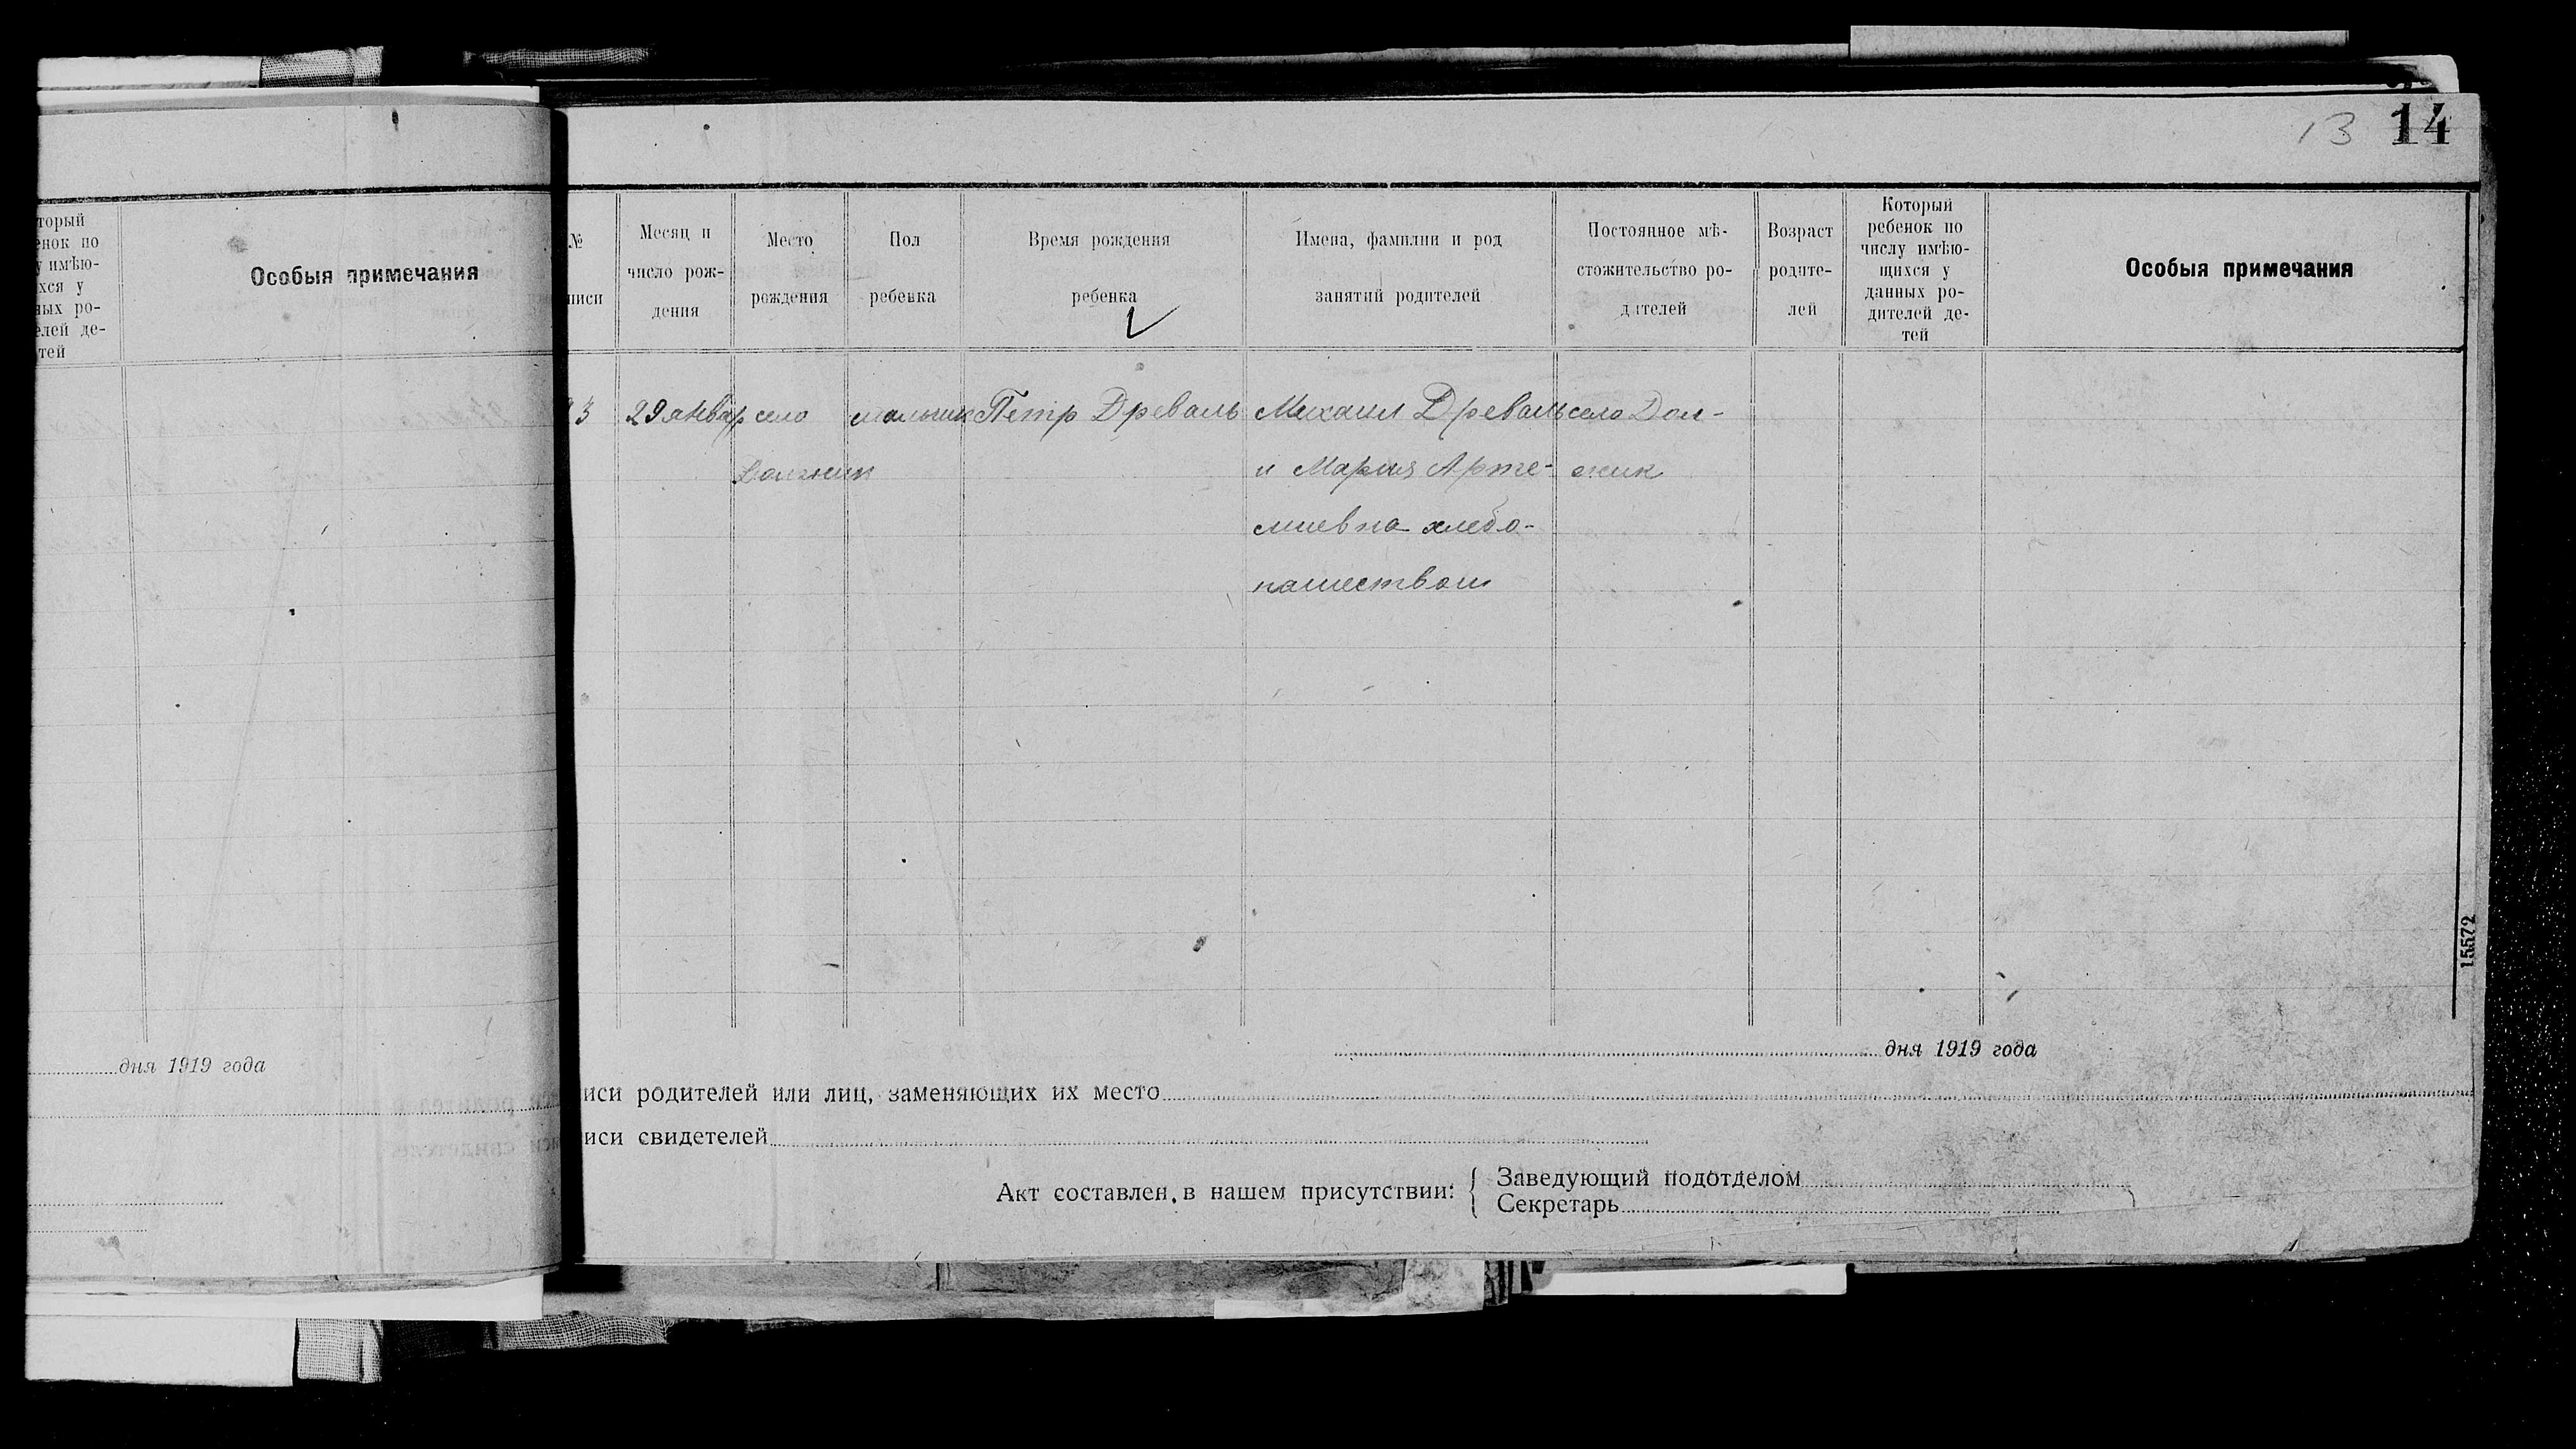 13 14
торый
енок по
у имѣю-
хся у
ных ро-
елей де-
тей
Особыя примечания
дня 1919 года
№
писи
Месяц и
число рож-
дения
Место
рождения
Пол
ребенка
Время рождения
ребенка
Имена, фамилии и род
занятий родителей
Постоянное мѣ-
стожительство ро-
дителей
Возраст
родите-
лей
Который
ребенок по
числу имѣю-
щихся у
данных ро-
дителей де-
тей
Особыя примечания
3 29 январ село мальчик Петр Древаль Михаил Древаль село Дол-
Должик и Мария Арте- жик
миевна хлебо-
пашеством
15572
дня 1919 года
иси родителей или лиц, заменяющих их место
иси свидетелей
Акт составлен в нашем присутствии:
Заведующий подотделом
Секретарь